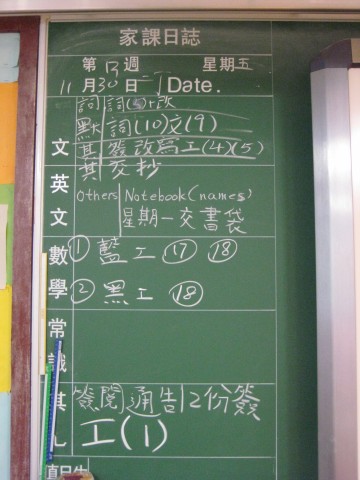 家課日誌
第13週 星期五
11月30日 Date.
詞 詞(5)+改
黑 詞(10)文(9)
文 其 簽改寫工(4)(5)
其 交抄
英 Others Notebook(names)
文 星期一交書袋
數 ① 藍工 ⑰ ⑱
學 ② 黑工 ⑱
常
識
其 簽閱通告 2份簽
工(1)
直日生